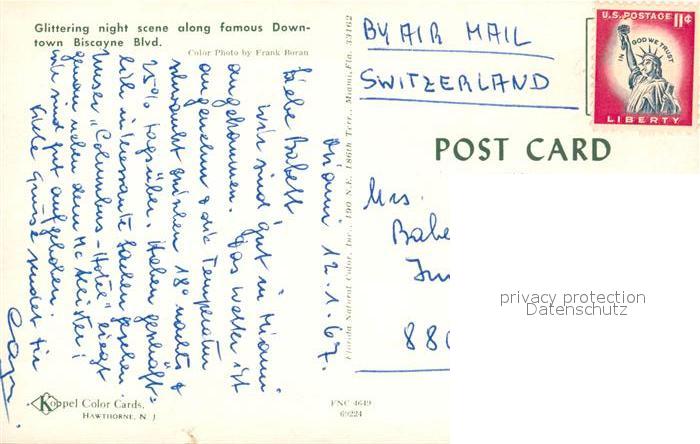 Glittering night scene along famous Down-
town Biscayne Blvd.
Color Photo by Frank Boran
Miami 12.1.67.
Liebe Babett,
wir sind gut in Miami
angekommen. Das Wetter ist
angenehm & die Temperatur
schwankt zwischen 18° nachts &
25° tagsüber. Haben geschäft-
lich interessante Sachen gesehen.
Unser "Columbus-Hotel" liegt
genau neben dem McAllister!
Wir sind gut aufgehoben.
Viele Grüsse sendet Dir
Koppel Color Cards,
HAWTHORNE, N. J
FNC 4649
69224
Florida Natural Color, Inc., 190 N.E. 186th Terr., Miami, Fla. 33162
BY AIR MAIL
SWITZERLAND
U.S. POSTAGE 11¢
IN GOD WE TRUST
LIBERTY
POST CARD
Mrs.
Babe
880
privacy protection
Datenschutz